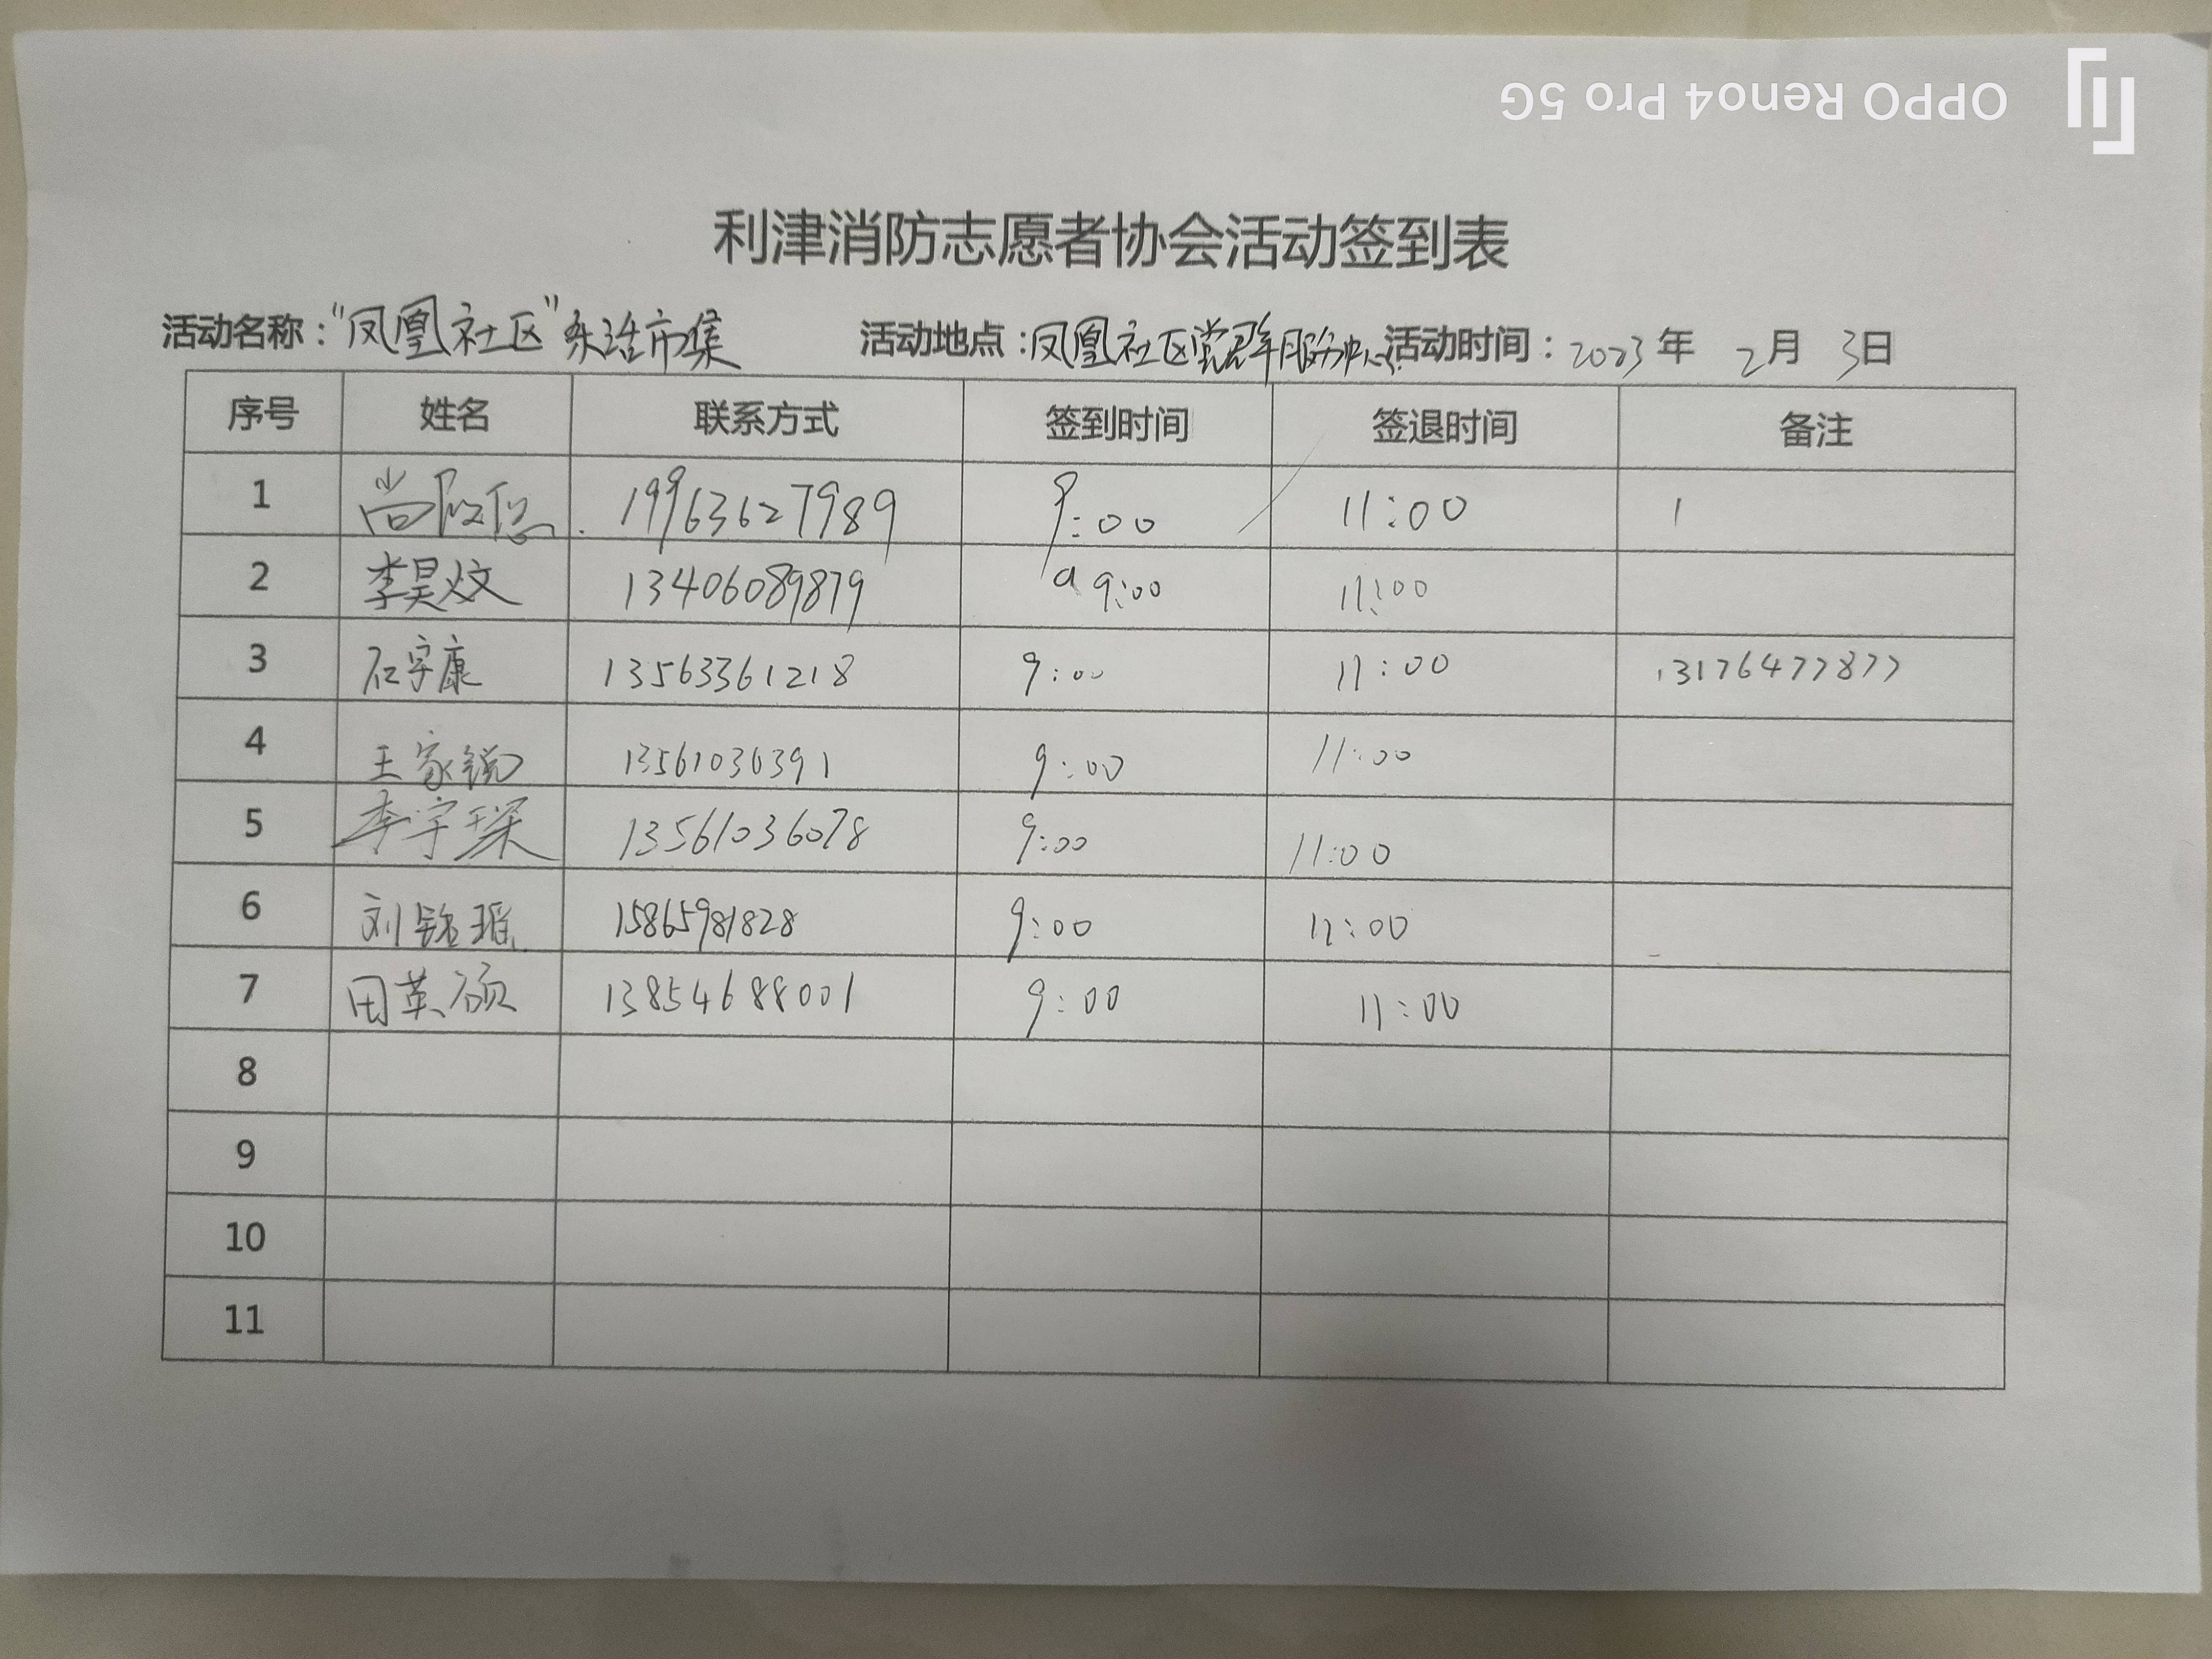 OPPO Reno4 Pro 5G
利津消防志愿者协会活动签到表
活动名称："凤凰社区"乐活市集 活动地点：凤凰社区党群服务中心 活动时间：2023年 2月 3日
序号 姓名 联系方式 签到时间 签退时间 备注
1 尚 19963627989 9:00 11:00 1
2 李昊 13406089879 9:00 11:00
3 石宇康 13563361218 9:00 11:00 13176477877
4 王家锐 13561036391 9:00 11:00
5 李宇琛 13561036078 9:00 11:00
6 刘铭瑶 15865981828 9:00 11:00
7 田英硕 13854688001 9:00 11:00
8
9
10
11